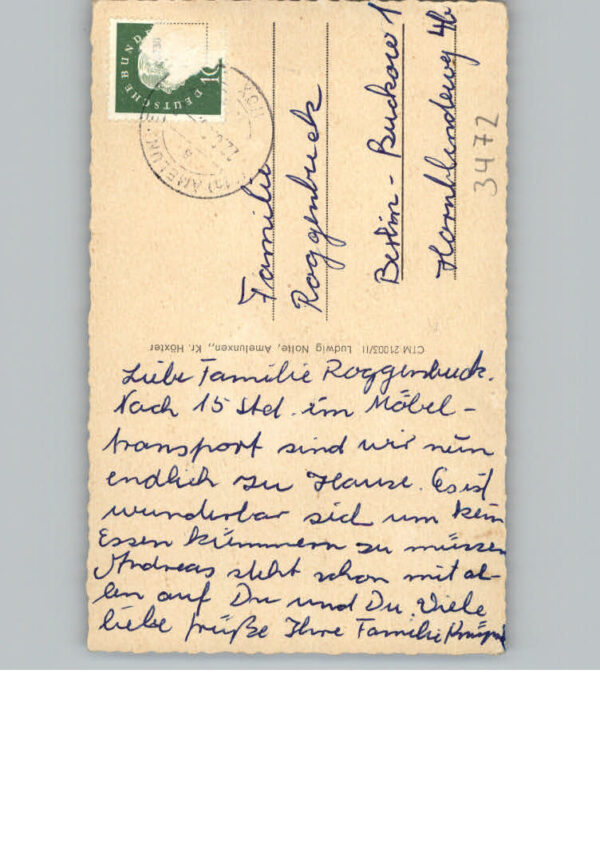 Liebe Familie Roggenbuck.
Nach 15 Std. im Möbel-
transport sind wir nun
endlich zu Hause. Es ist
wunderbar sich um kein
Essen kümmern zu müssen
Andreas steht schon mit al-
len auf Du und Du. Viele
liebe Grüße Ihre Familie
Familie
Roggenbuck
Berlin - Buckow 1
Hornblendeweg 4b
3472
CTM 21003/11 Ludwig Nolte, Amelunxen,, Kr. Höxter
10
DEUTSCHE BUND
AMELUNXEN